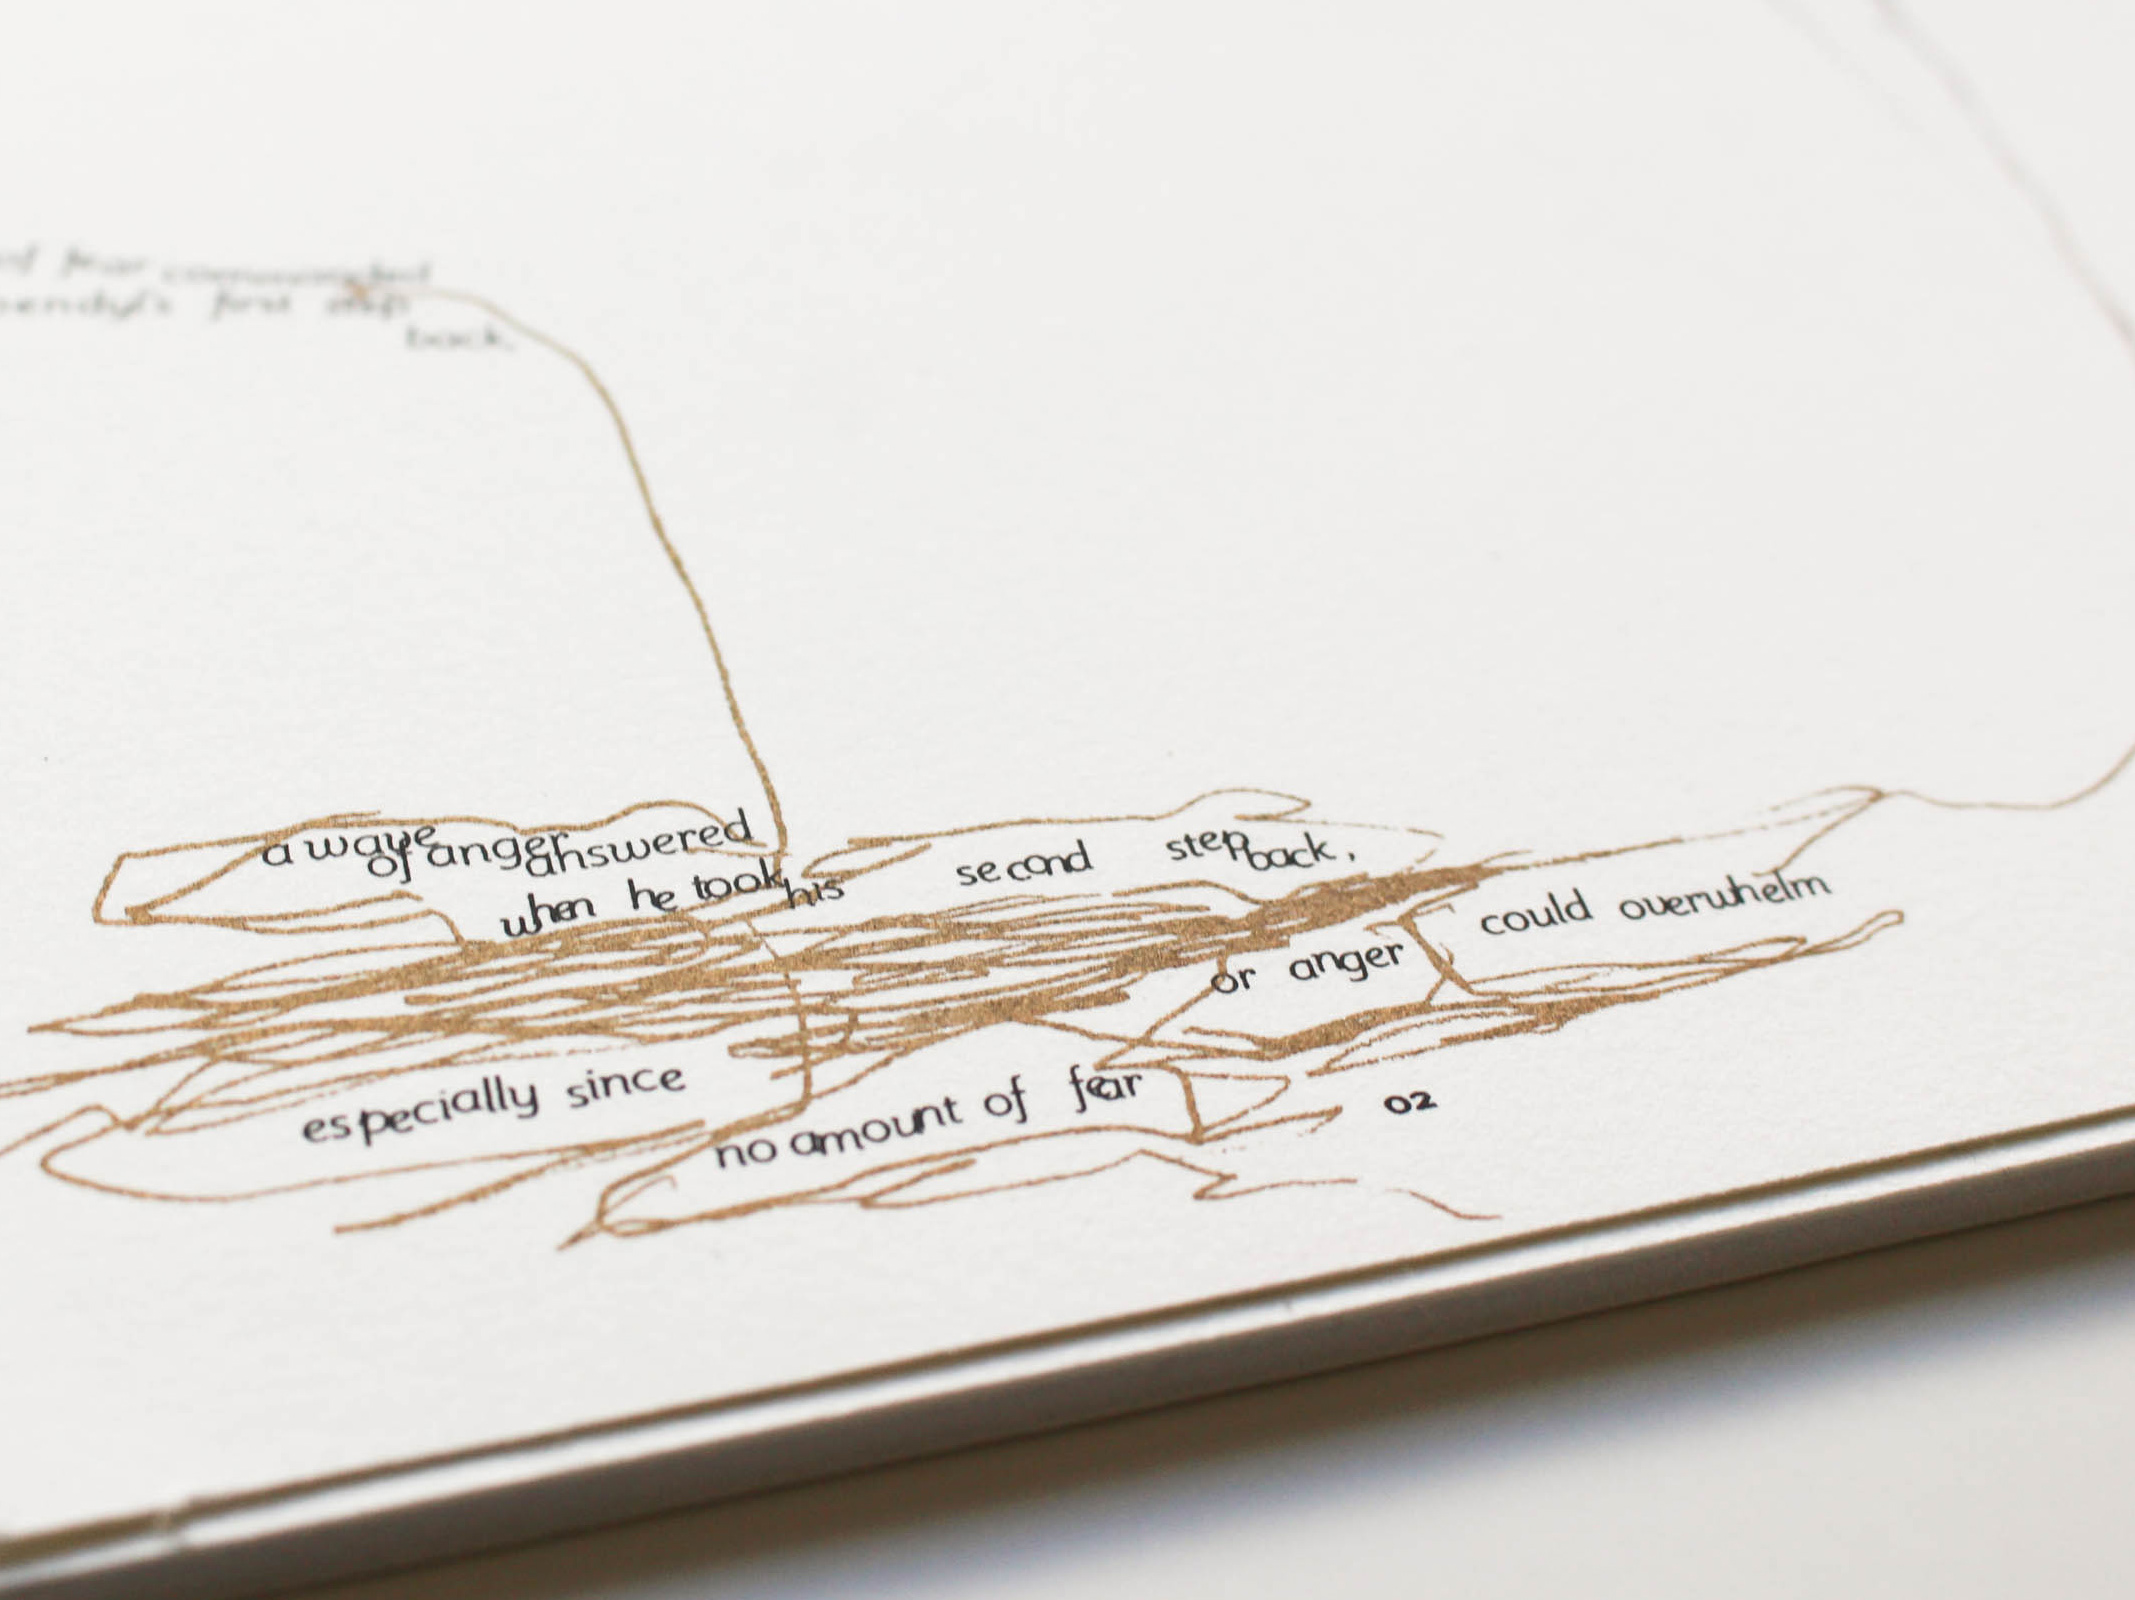 of fear commanded
first step
back.
a wave of anger answered
when he took his second step back,
especially since no amount of fear or anger could overwhelm
02